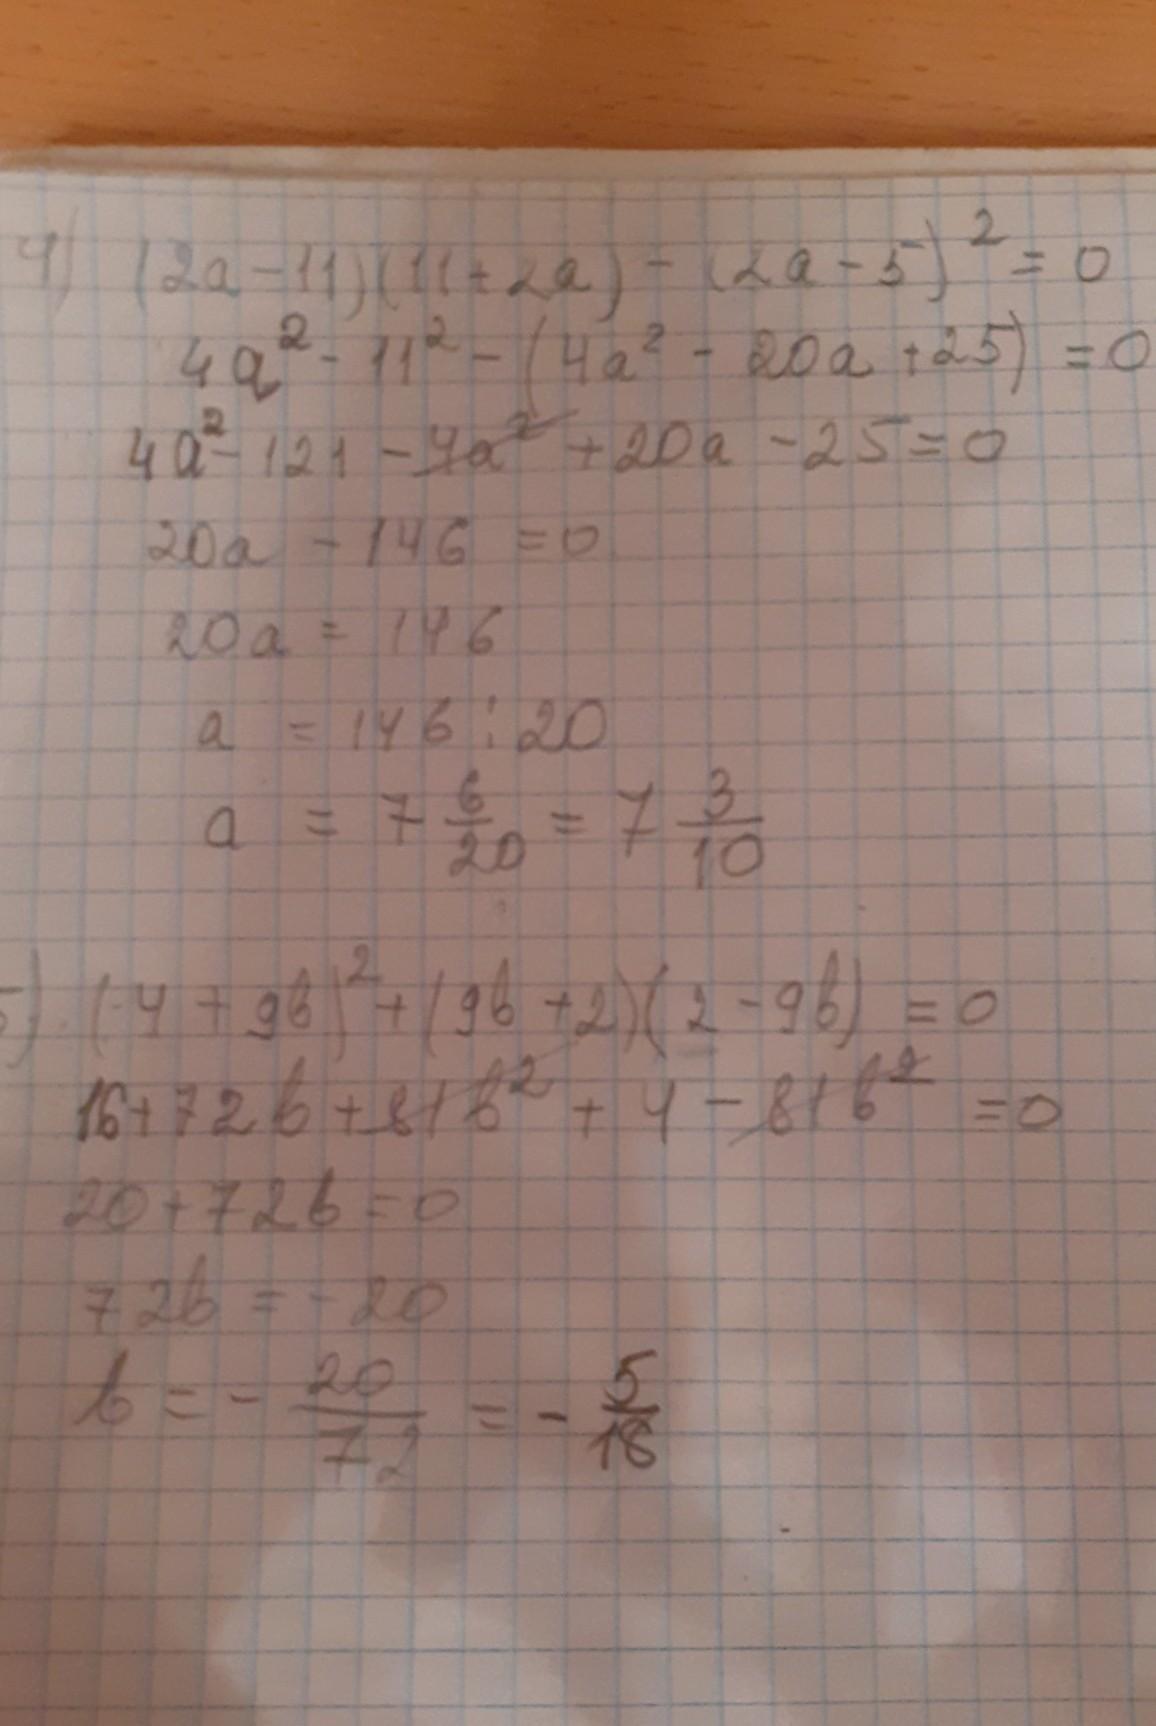 4) (2a-11)(11+2a) - (2a-5)² = 0
4a² - 11² - (4a² - 20a + 25) = 0
4a² - 121 - 4a² + 20a - 25 = 0
20a - 146 = 0
20a = 146
a = 146 : 20
a = 7 6/20 = 7 3/10
5) (-4 + 9b)² + (9b + 2)(2 - 9b) = 0
16 + 72b + 81b² + 4 - 81b² = 0
20 + 72b = 0
72b = -20
b = - 20/72 = - 5/18